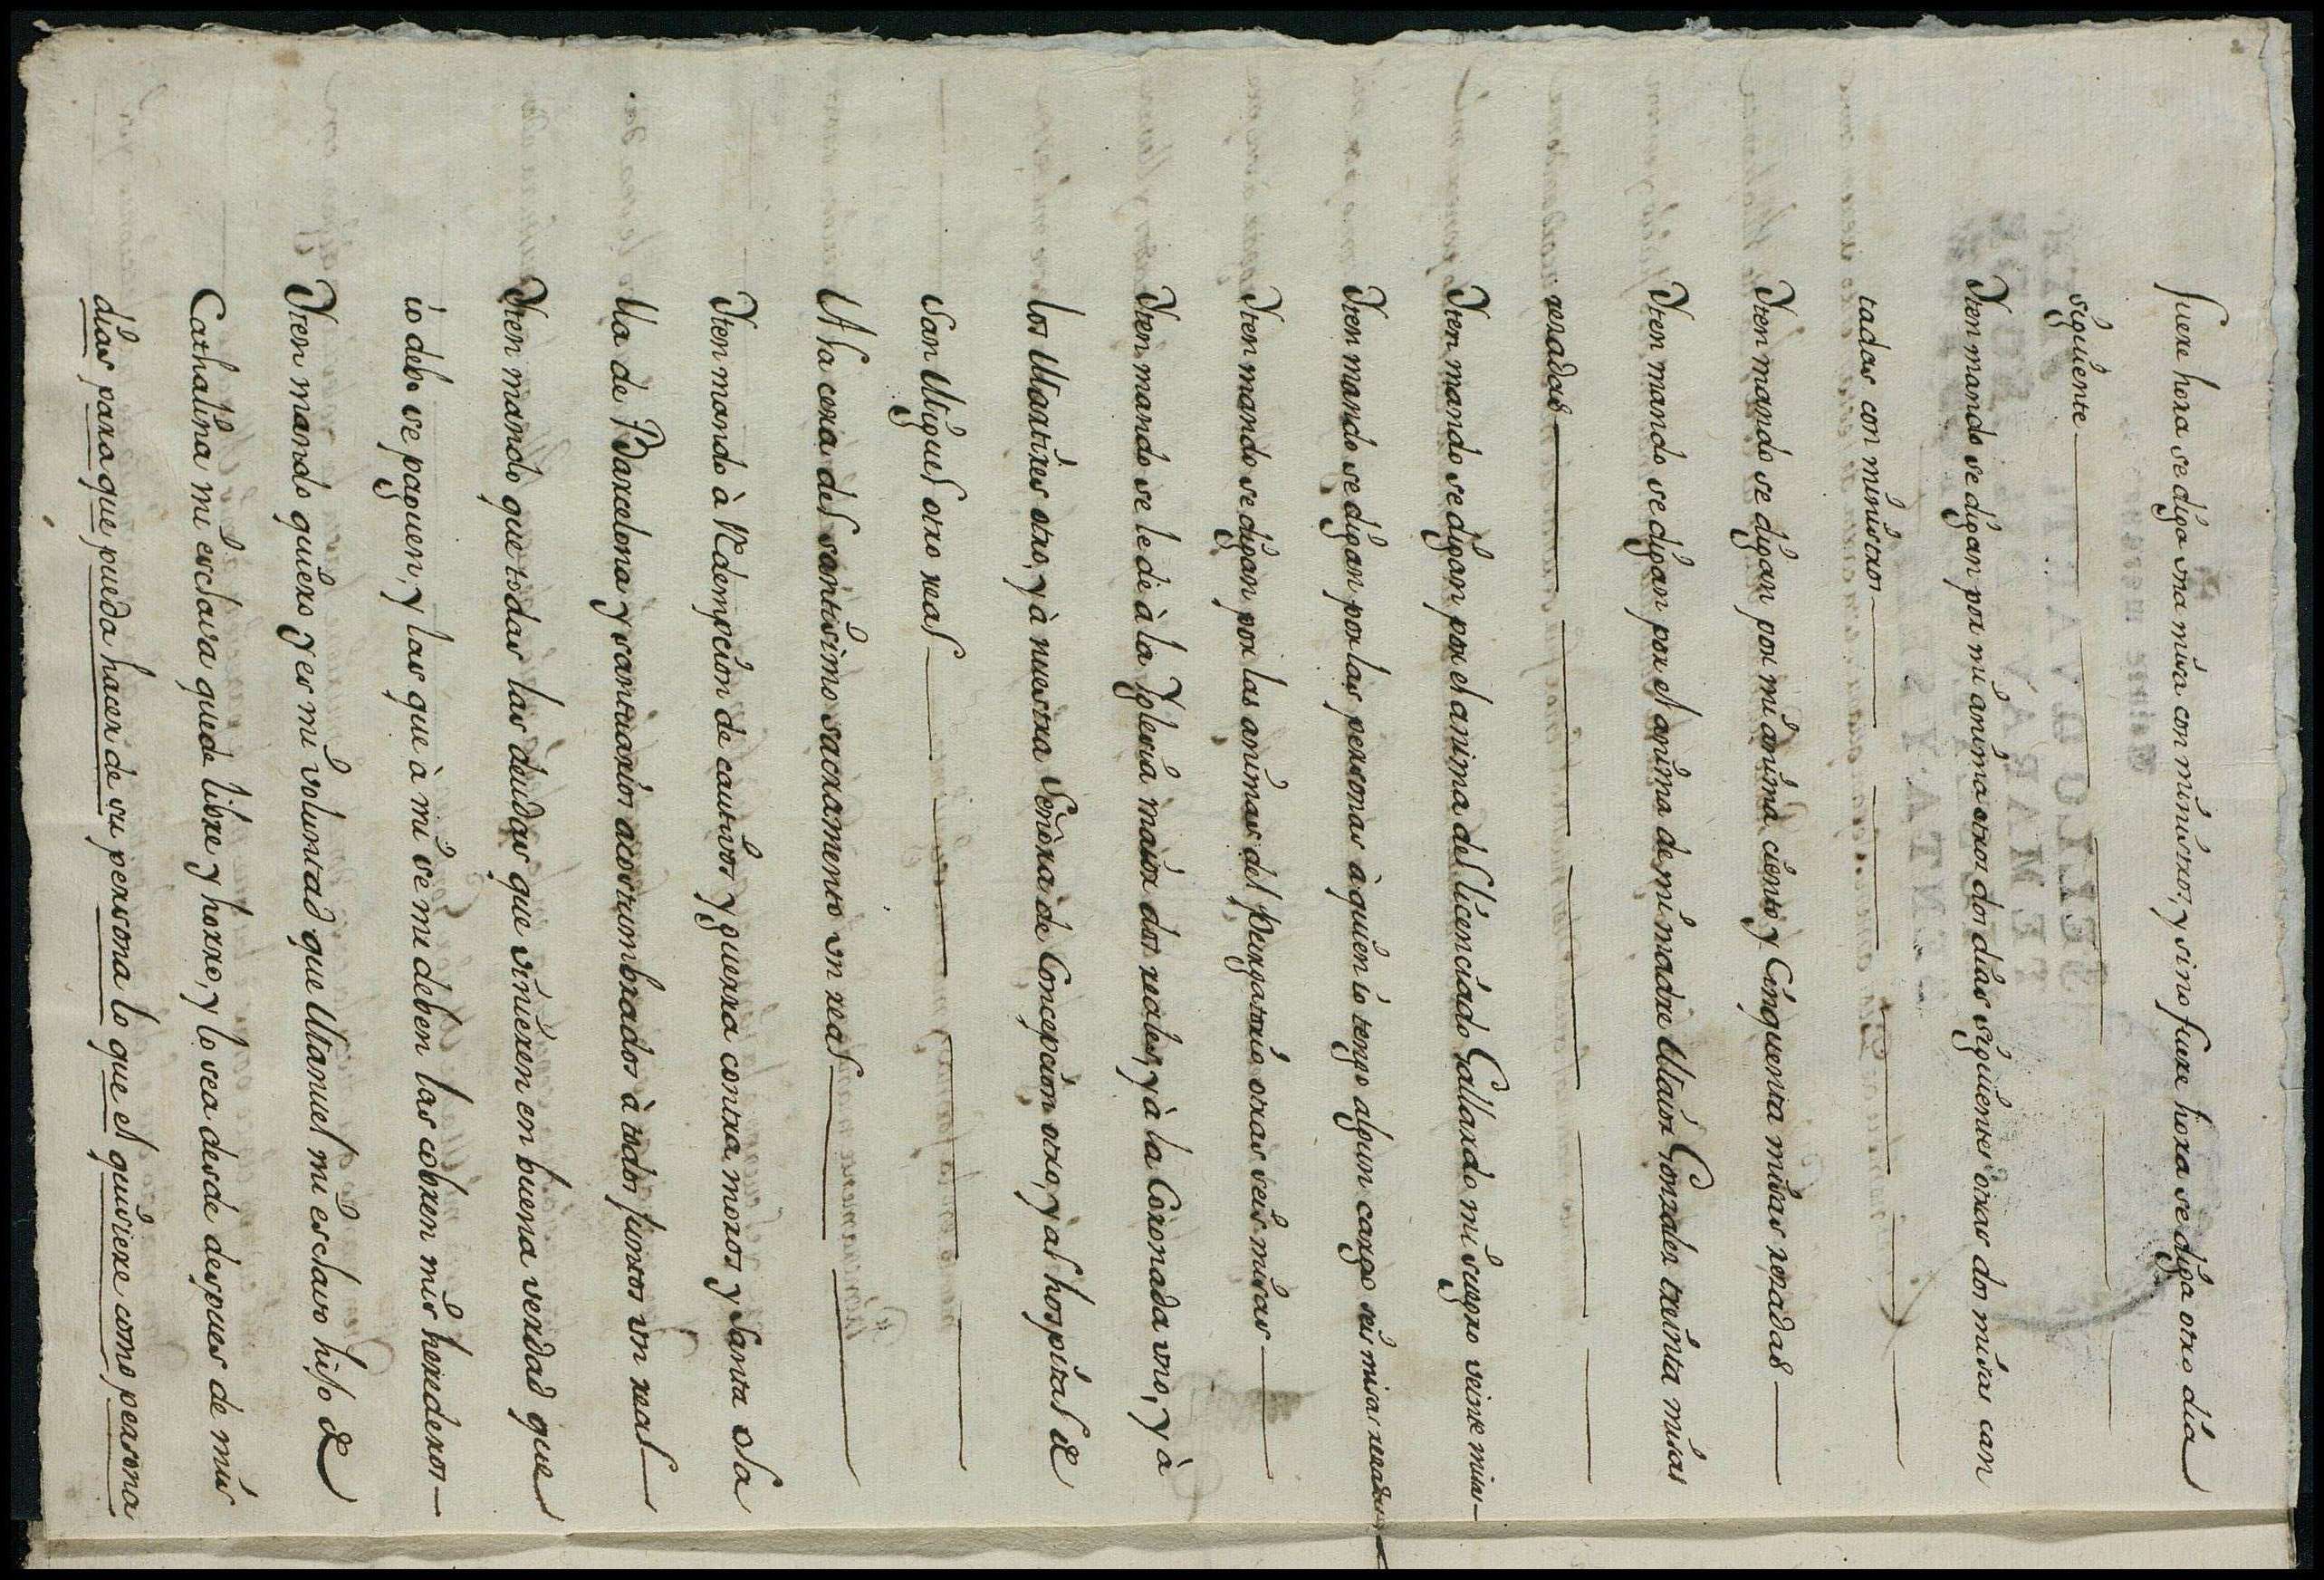 fuere hora se diga vna misa con ministros, y si no fuere hora se diga otro dia
siguiente
Yten mando se digan por mi anima otros dos dias siguientes otras dos misas can
tadas con ministros
Yten mando se digan por mi anima ciento y Cinquenta misas rezadas
Yten mando se digan por el anima de mi madre Maior Gonzalez treinta misas
rezadas
Yten mando se digan por el anima del licenciado Gallardo mi suegro veinte misas
Yten mando se digan por las personas à quien io tengo algun cargo seis misas rezadas
Yten mando se digan por las animas del Purgatorio otras seis misas
Yten mando se le dè à la Yglesia maior dos reales, y à la Coronada vno, y à
los Martires otro, y à nuestra Señora de Concepcion otro, y al hospital de
San Miguel otro real
A la cera del santisimo sacramento vn real
Yten mando à Redempcion de cautivos y guerra contra moros y Santa Ola
lla de Barcelona y santuarios acostumbrados à todos juntos vn real
Yten mando que todas las deudas que vinieren en buena verdad que
io debo se paguen, y las que à mi se me deben las cobren mis herederos
Yten mando quiero y es mi voluntad que Manuel mi esclavo hijo de
Cathalina mi esclava quede libre y horro, y lo sea desde despues de mis
dias para que pueda hacer de su persona lo que el quisiere como persona